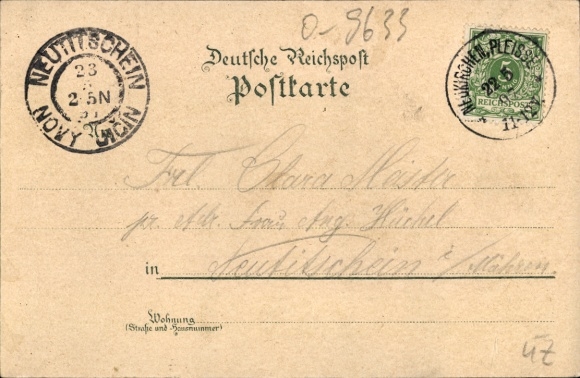 0-9633
NEUTITSCHEIN
23
2-5N
NOVÝ JIČÍN
Deutsche Reichspost
Postkarte
NEUKIRCHEN, PLEISSE
22.5
11-12V
5
REICHSPOST
Frl. Clara Meister
pr. Adr. Frau Aug. Hückel
in Neutitschein i/ Mähren.
Wohnung
(Straße und Hausnummer)